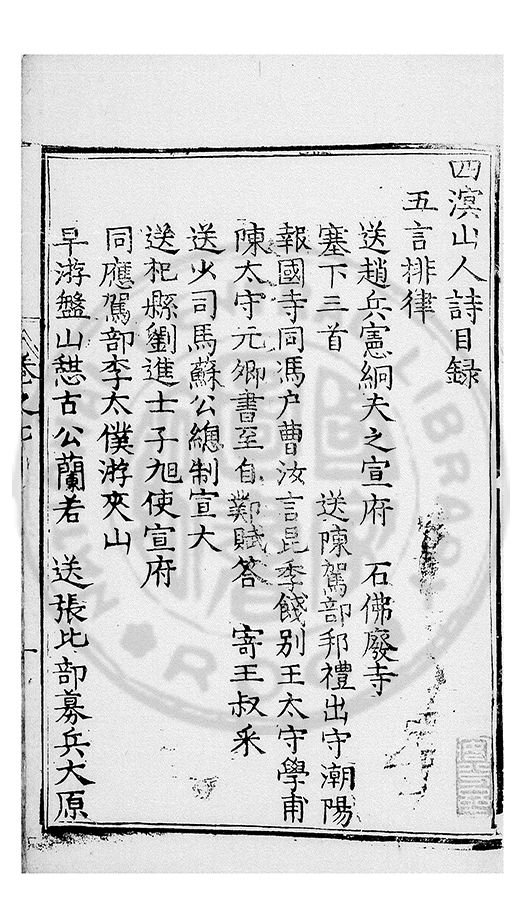 四溟山人詩目録
五言排律
送趙兵憲絅夫之宣府　石佛廢寺
塞下三首　送陳駕部邦禮出守潮陽
報國寺同馮户曹汝言昆季餞別王太守學甫
陳太守元卿書至自鄴賦答　寄王叔釆
送少司馬蘇公總制宣大
送杞縣劉進士子旭使宣府
同應駕部李太僕游夾山
早游盤山憇古公蘭若　送張比部募兵大原
卷之